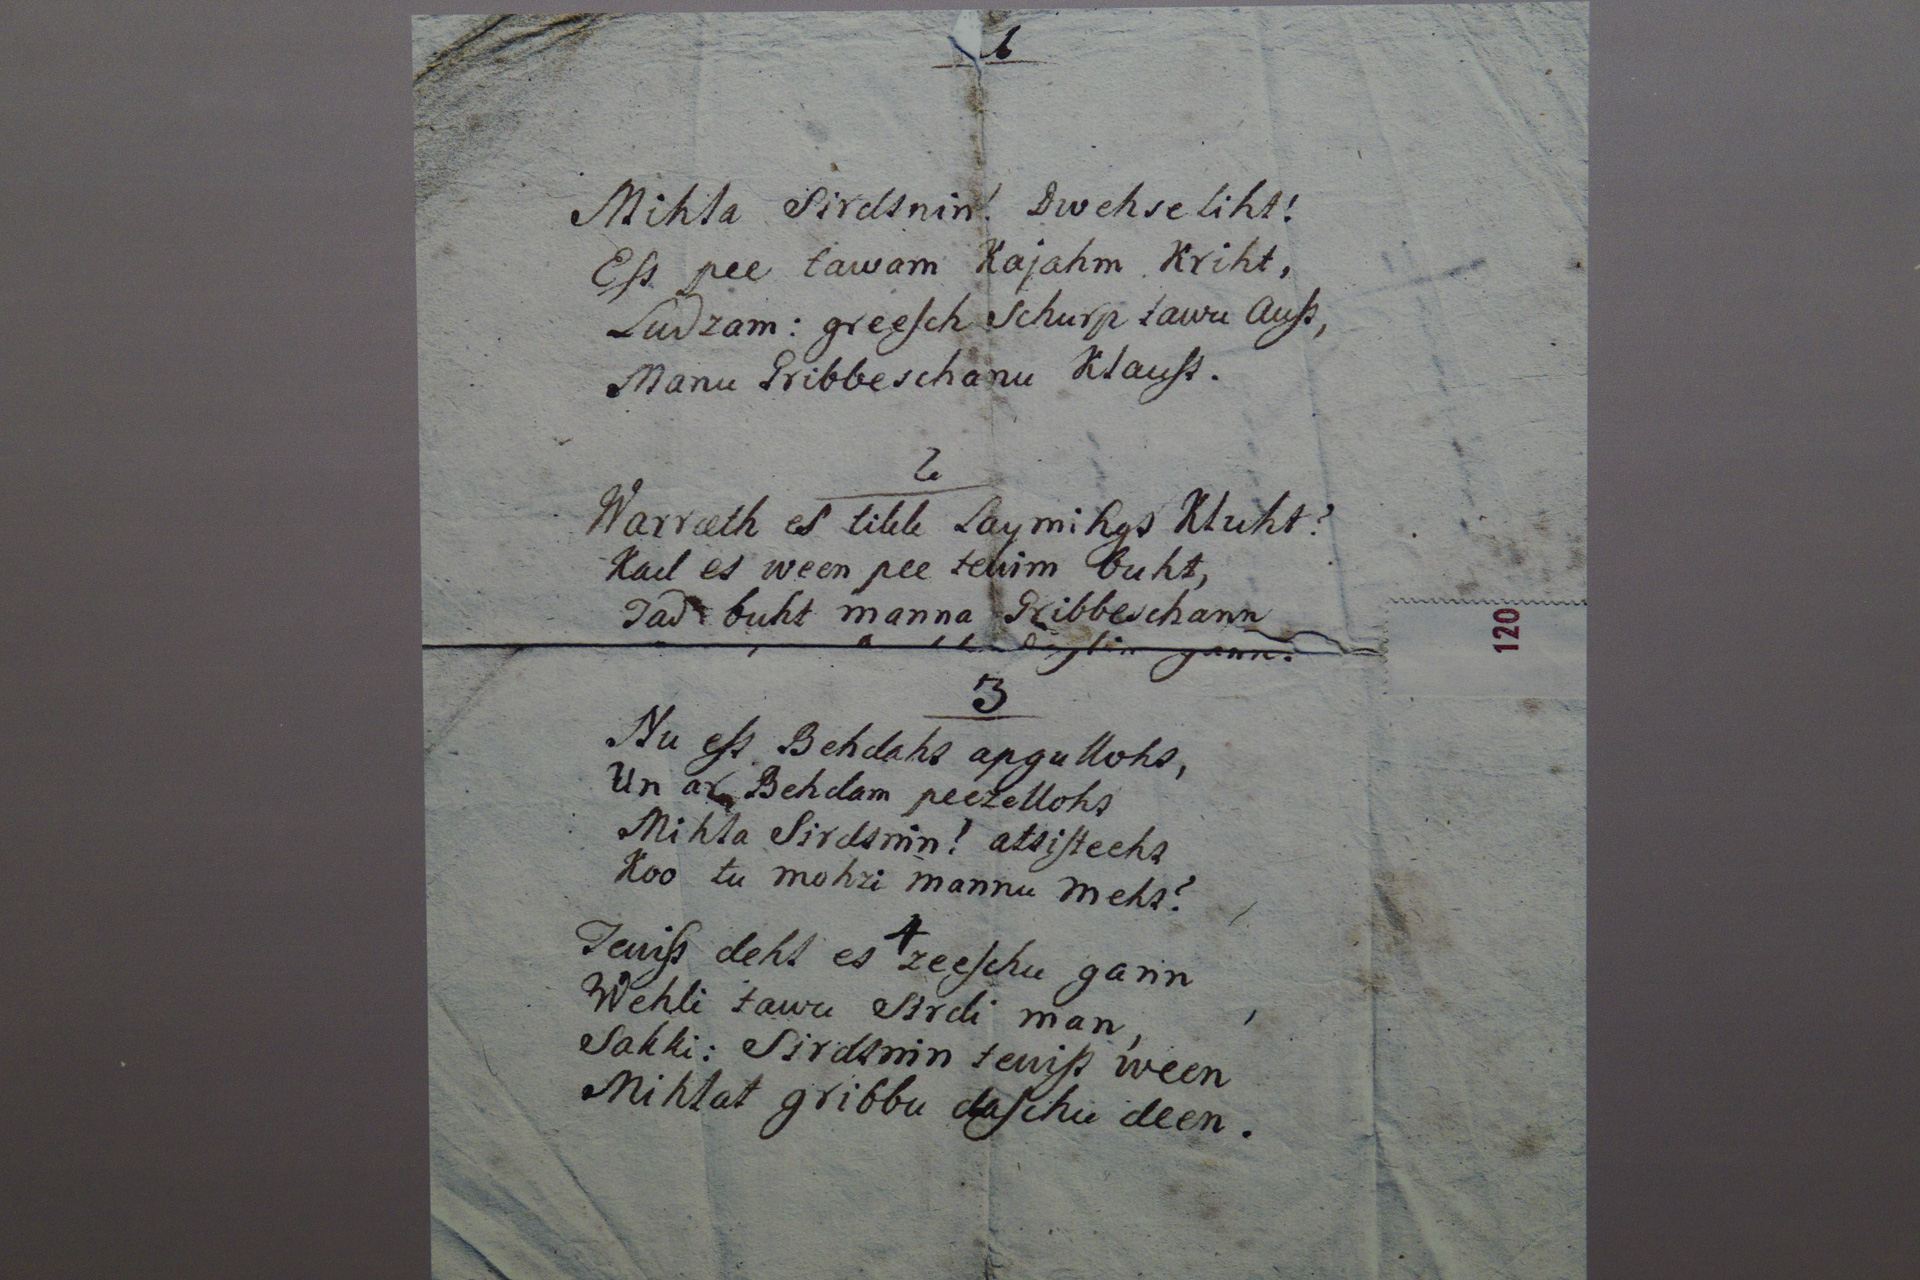 1
Mihļa Sirdsnin! Dwehseliht!
Eſs pee tawam Kajahm Kriht,
Ludzam: greeſch schurp tawu Auſs,
Manu Gribbeschanu Klauſs.
2
Warraeth es tikk Laymihgs Kluht?
Kad es ween pee tewim buht,
Tad buht manna Gribbeschann
gann.
3
Nu eſs Behdahs apgullohs,
Un ar Behdam peezellohs
Mihļa Sirdsnin! atsiſteehs
Koo tu mohzi mannu mehs?
4
Tewiſs deht es zeeſchu gann
Wehli tawu Sirdi man,
Sakki: Sirdsnin tewiſs ween
Mihlat gribbu daſchu deen.
120